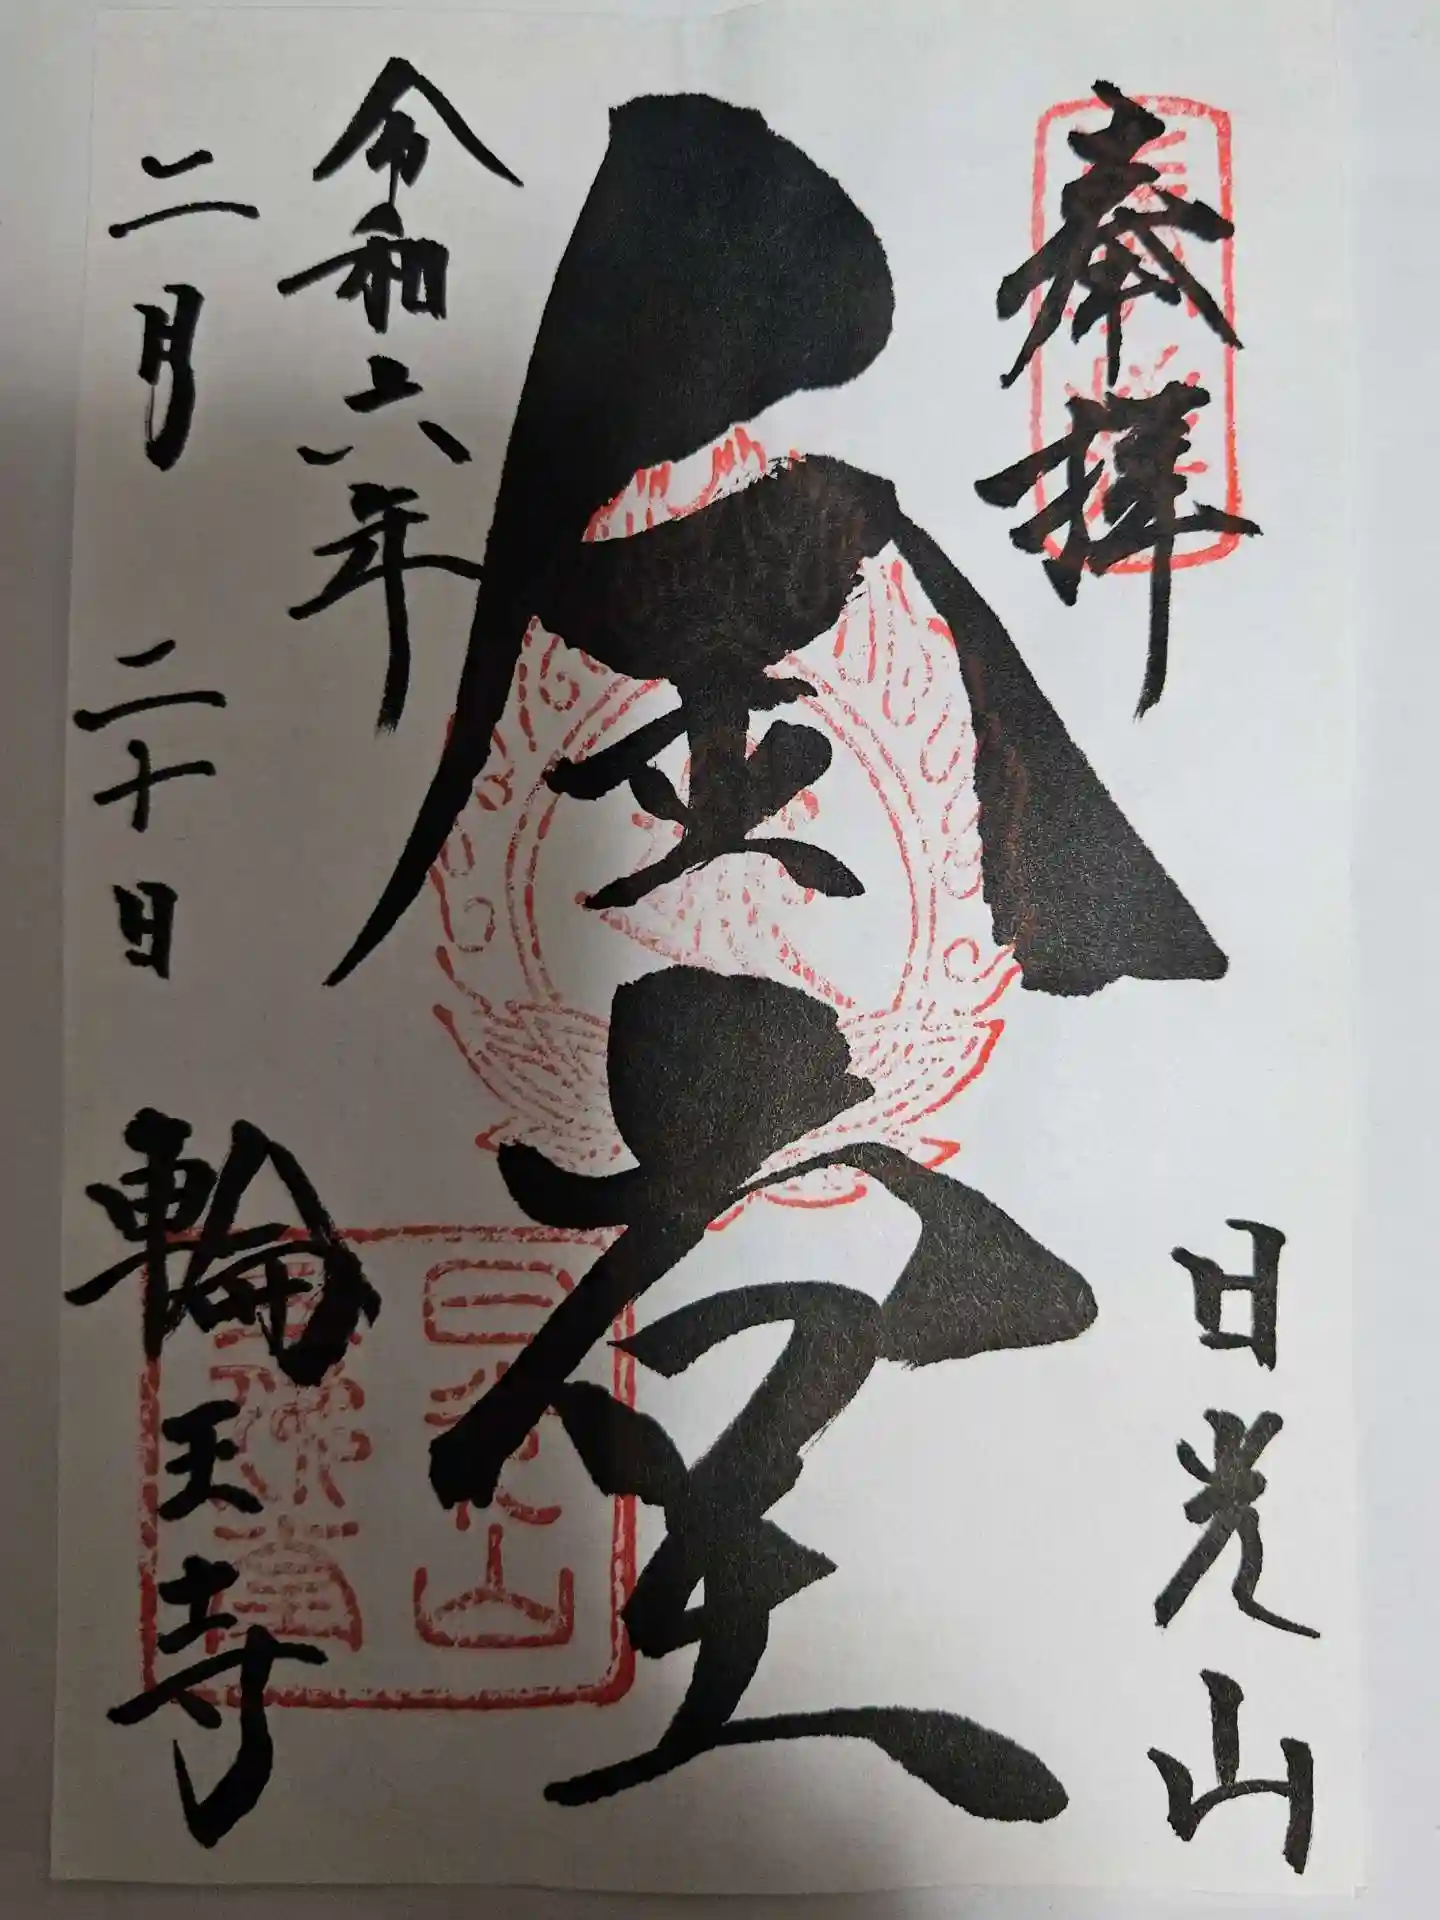 奉拝
日光山
金堂
令和六年
二月二十日
輪王寺
日光山